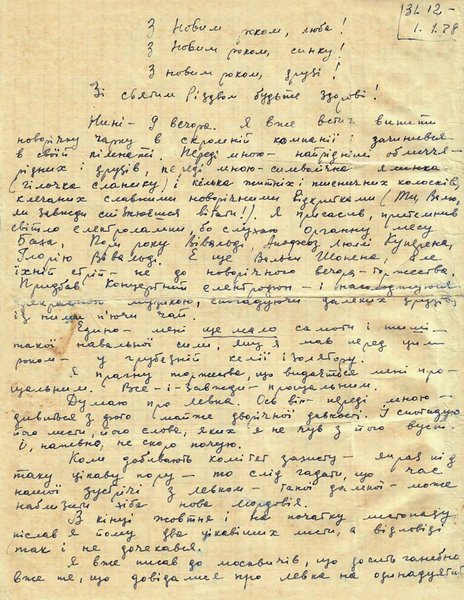 31.12 –
1.1.78
З Новим роком, люба!
З Новим роком, синку!
З новим роком, друзі!
Зі святим Різдвом будьте здорові!
Нині – 9 вечора. Я вже встиг випити
новорічну чарку в скромній компанії і зачинився
в своїй кімнаті. Переді мною – найрідніші обличчя –
рідних і друзів, переді мною – символічна ялинка
(гілочка сланику) і кілька житніх і пшеничних колосків,
славними новорічними відкритками (Ти, Валю,
ми завжди вітати!). Я пригасив, притемнив
світло електролампи, бо слухаю Органну месу
Баха, Пори року Вівальді, Люлі Куперена,
Глорію Вівальді. Є ще Вальси Шопена, але
їхній стрій – не до новорічного вечора-торжества.
Придбав Концертний електрофон – і насолоджуюся
прекрасною музикою, спогадуючи далеких друзів,
із ними п'ючи чай.
Єдино – мені ще мало самоти і тиші –
такої навальної сили, яку я мав перед цим
роком – у грубезній келії ізолятору.
Я прагну торжества, що видається мені про-
щальним. Все – і – завжди – прощальним.
Думаю про Левка. Ось він – переді мною –
дивиться з дого майже дворічної давності. І спогадую
його листи, його слова, яких я не чув з його вуст.
І, напевно, не скоро почую.
Коли добивають комітет захисту – якраз під
таку цікаву пору – то слід гадати, що час
нашої зустрічі з Левком – такої дальної – може
наблизити хіба нова мордовія.
В кінці жовтня і на початку листопаду
післав я йому два цікавіших листи, а відповіді
так і не дочекався.
Я вже писав до москвичів, що досить ганебно
вже те, що довідалися про Левка на одинадцятий